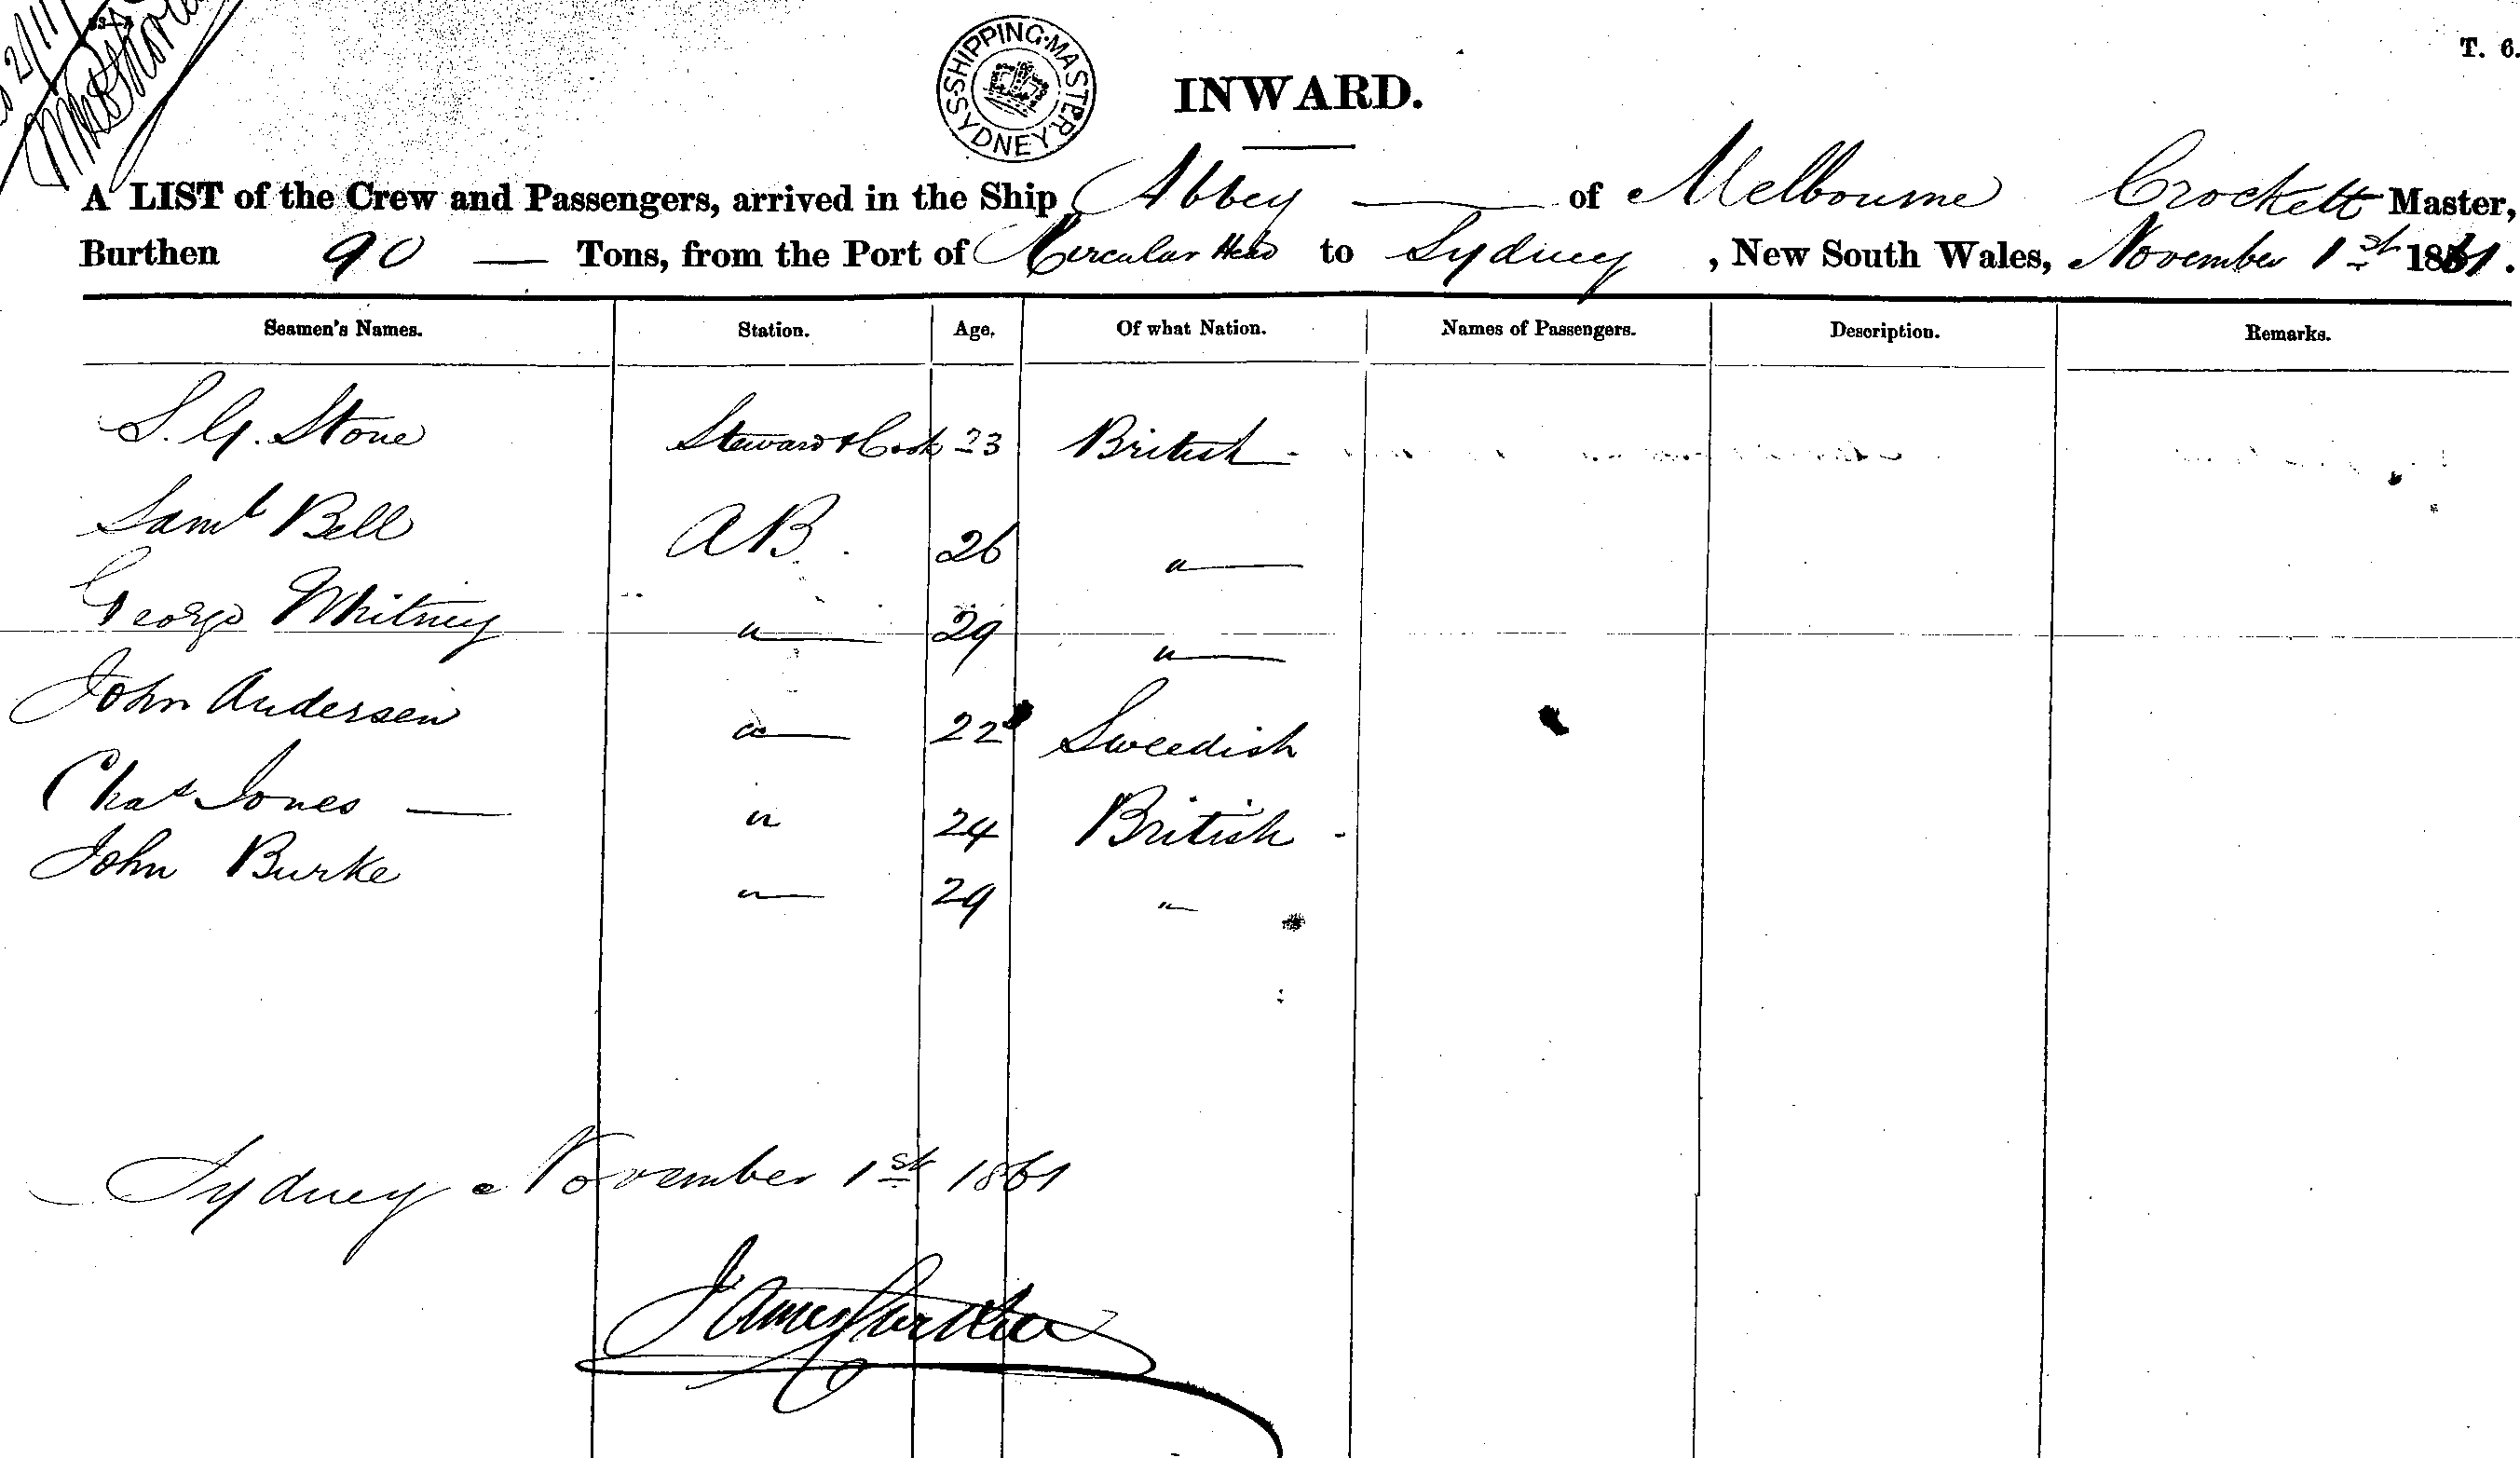 SHIPPING·MASTER·SYDNEY·
INWARD.
T. 6.
A LIST of the Crew and Passengers, arrived in the Ship Abbey of Melbourne Crockett Master,
Burthen 90 Tons, from the Port of Circular Head to Sydney, New South Wales, November 1st 1861.
Seamen's Names. Station. Age. Of what Nation. Names of Passengers. Description. Remarks.
S. G. Stone Steward & Cook 23 British
Saml Bell AB. 26 "
George Whitney " 29 "
John Andersen " 22 Sweedish
Chas Jones " 24 British
John Burke " 29 "
Sydney November 1st 1861
James